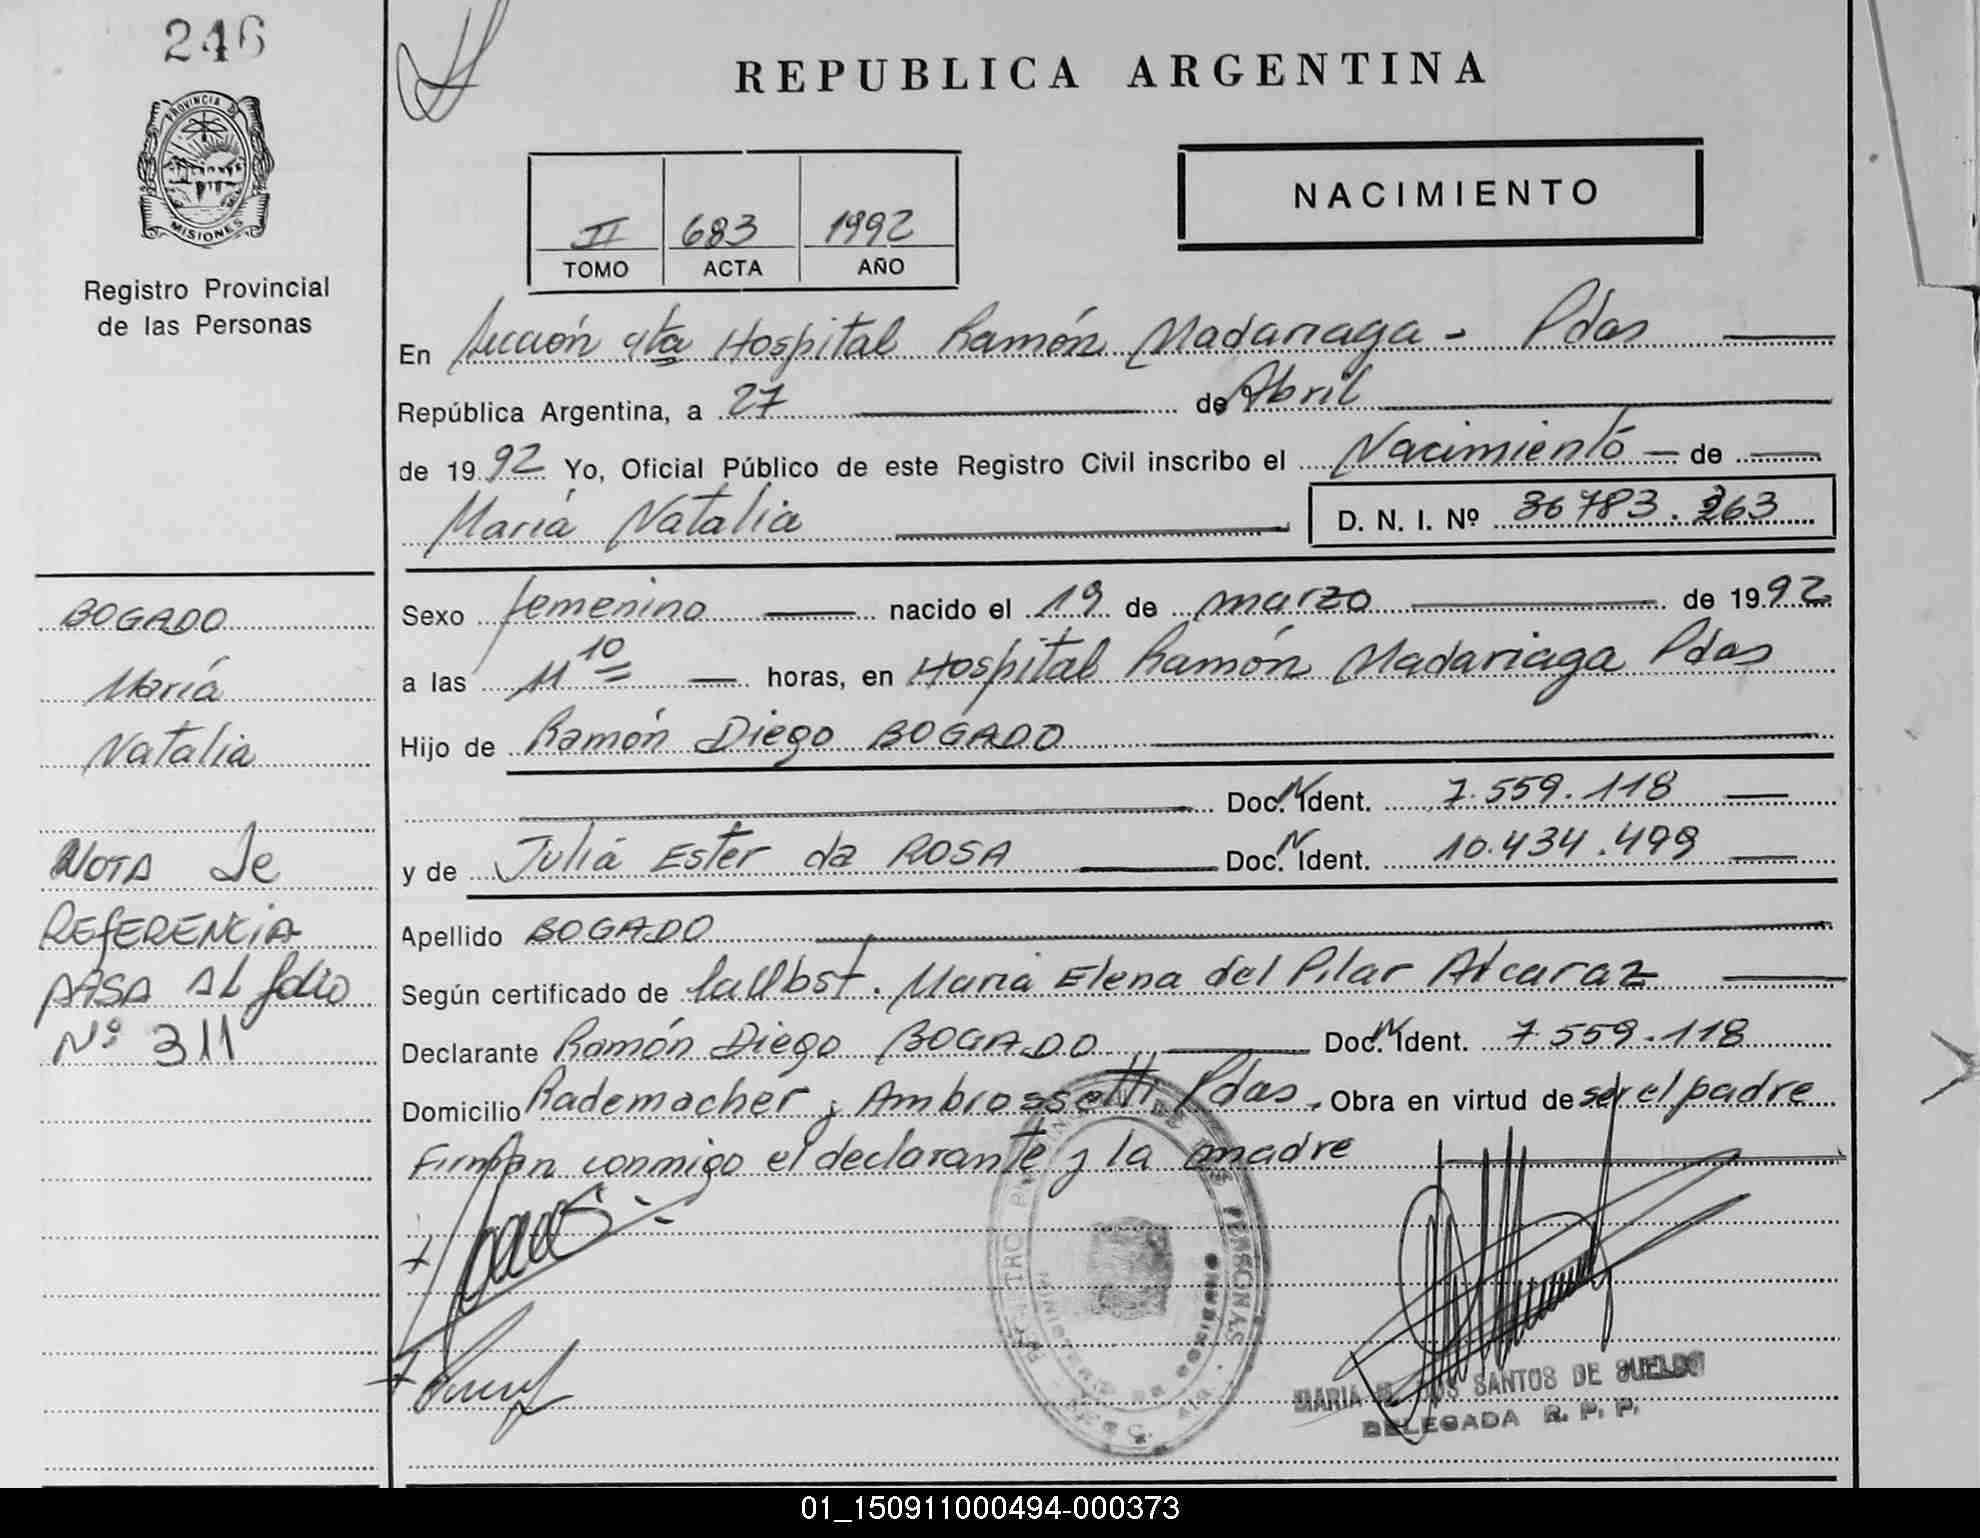 246
PROVINCIA DE
MISIONES
Registro Provincial
de las Personas
REPUBLICA ARGENTINA
NACIMIENTO
II 683 1992
TOMO ACTA AÑO
En Sección 4ta Hospital Ramón Madariaga - Pdas
República Argentina, a 27 de Abril
de 1992 Yo, Oficial Público de este Registro Civil inscribo el Nacimiento de
María Natalia D. N. I. Nº 36783.263
BOGADO
María
Natalia
NOTA de
REFERENCIA
PASA AL folio
Nº 311
Sexo femenino nacido el 19 de marzo de 1992
a las 11 10 horas, en Hospital Ramón Madariaga Pdas
Hijo de Ramón Diego BOGADO
Doc. N. Ident. 7.559.118
y de Julia Ester da ROSA Doc. N. Ident. 10.434.499
Apellido BOGADO
Según certificado de la Obst. María Elena del Pilar Alcaraz
Declarante Ramón Diego BOGADO Doc. N. Ident. 7.559.118
Domicilio Rademacher y Ambrossetti Pdas. Obra en virtud de ser el padre
Firman conmigo el declarante y la madre
DE LAS PERSONAS
MARIA DOS SANTOS DE SUELDO
DELEGADA R. P. P.
01_150911000494-000373